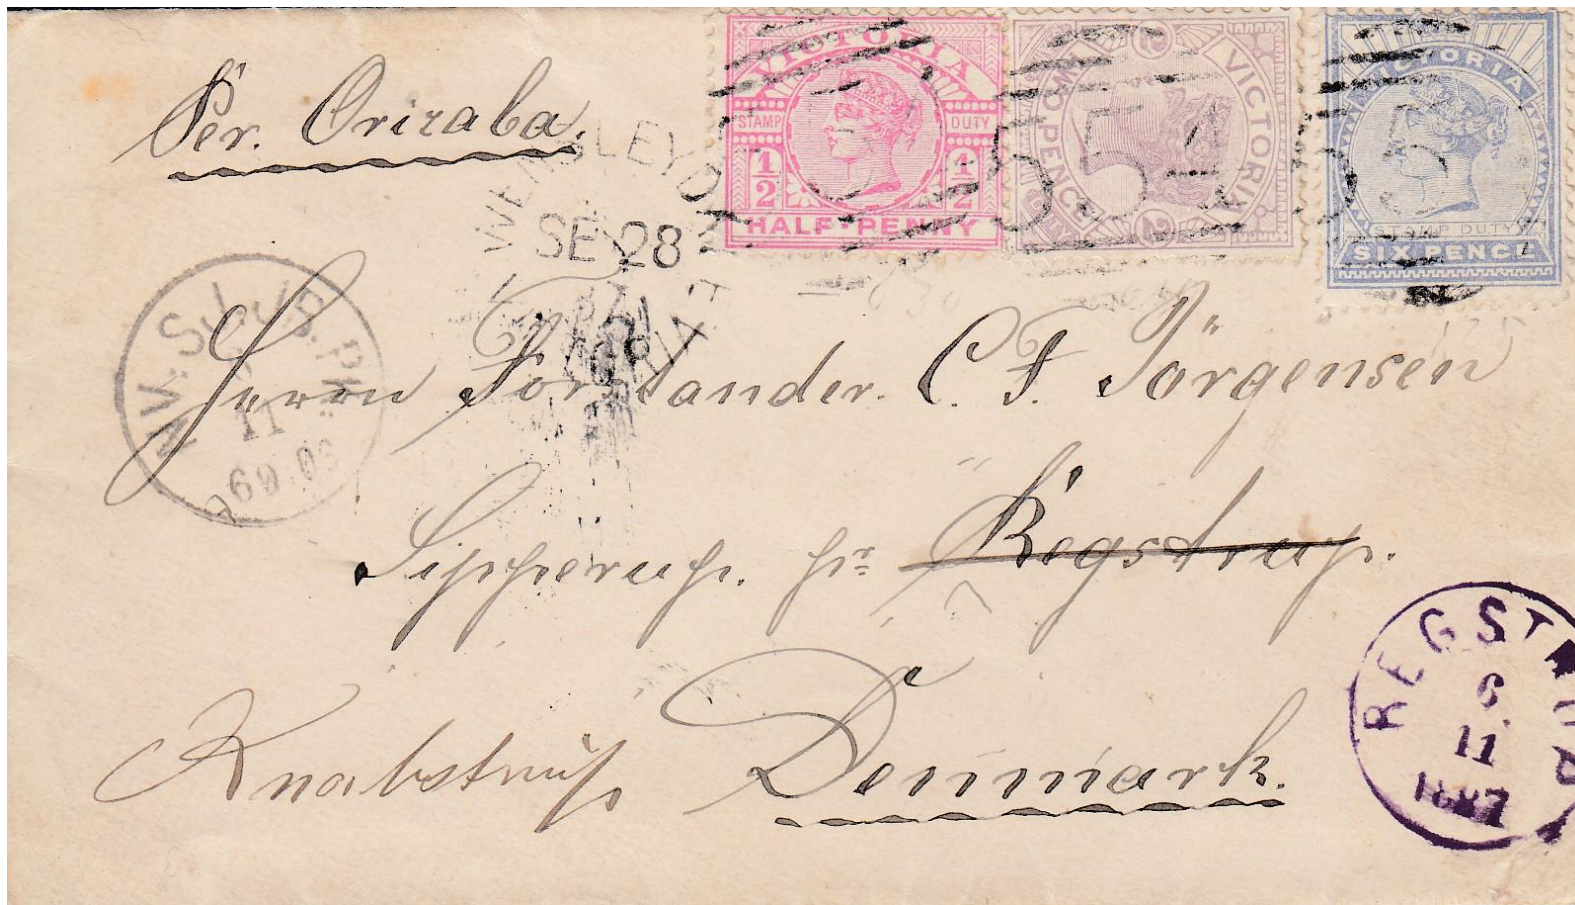 Per. Orizaba.
VICTORIA
STAMP DUTY
1/2 1/2
HALF·PENNY
VICTORIA
TWO PENCE
2 2
VICTORIA
STAMP DUTY
SIX PENCE
SE 28
87
Herrn Forstander. C. F. Jörgensen
Sipperup. pr. Regstrup.
Knabstrup Denmark.
REGSTRUP
6
11
1887
11